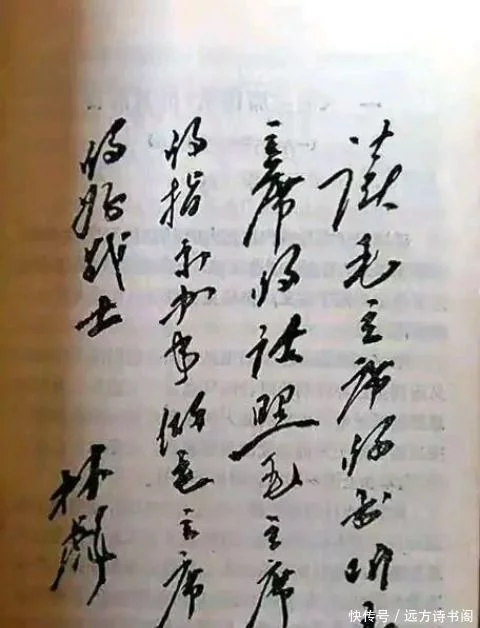 读毛主席的书听毛
主席的话照毛主席
的指示办事做毛主席
的好战士
林彪
快传号／远方诗书阁